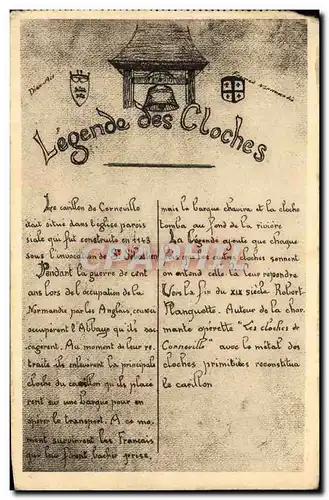 Légende des Cloches
Le carillon de Corneville
était situé dans l'église parois
siale qui fut construite en 1143
sous l'invocation de St
Pendant la guerre de cent
ans lors de l'occupation de la
Normandie par les Anglais, ceux-ci
occupèrent l'Abbaye qu'ils sac
cagèrent. Au moment de leur re-
traite ils enlevèrent la principale
cloche du carillon qu'ils place
rent sur une barque pour en
opérer le transport. A ce mo-
ment survinrent les Français
qui leur firent lacher prise,
mais la barque chavira et la cloche
tomba au fond de la rivière
La légende ajoute que chaque
cloches sonnent
on entend celle de leur repondre
Vers la fin du XIX siècle Robert
Planquette. Auteur de la char
mante operette "Les cloches de
Corneville" avec le métal des
cloches primitives reconstitua
le carillon